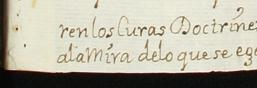 ren los Curas Doctrine
a la Mira de lo que se exe